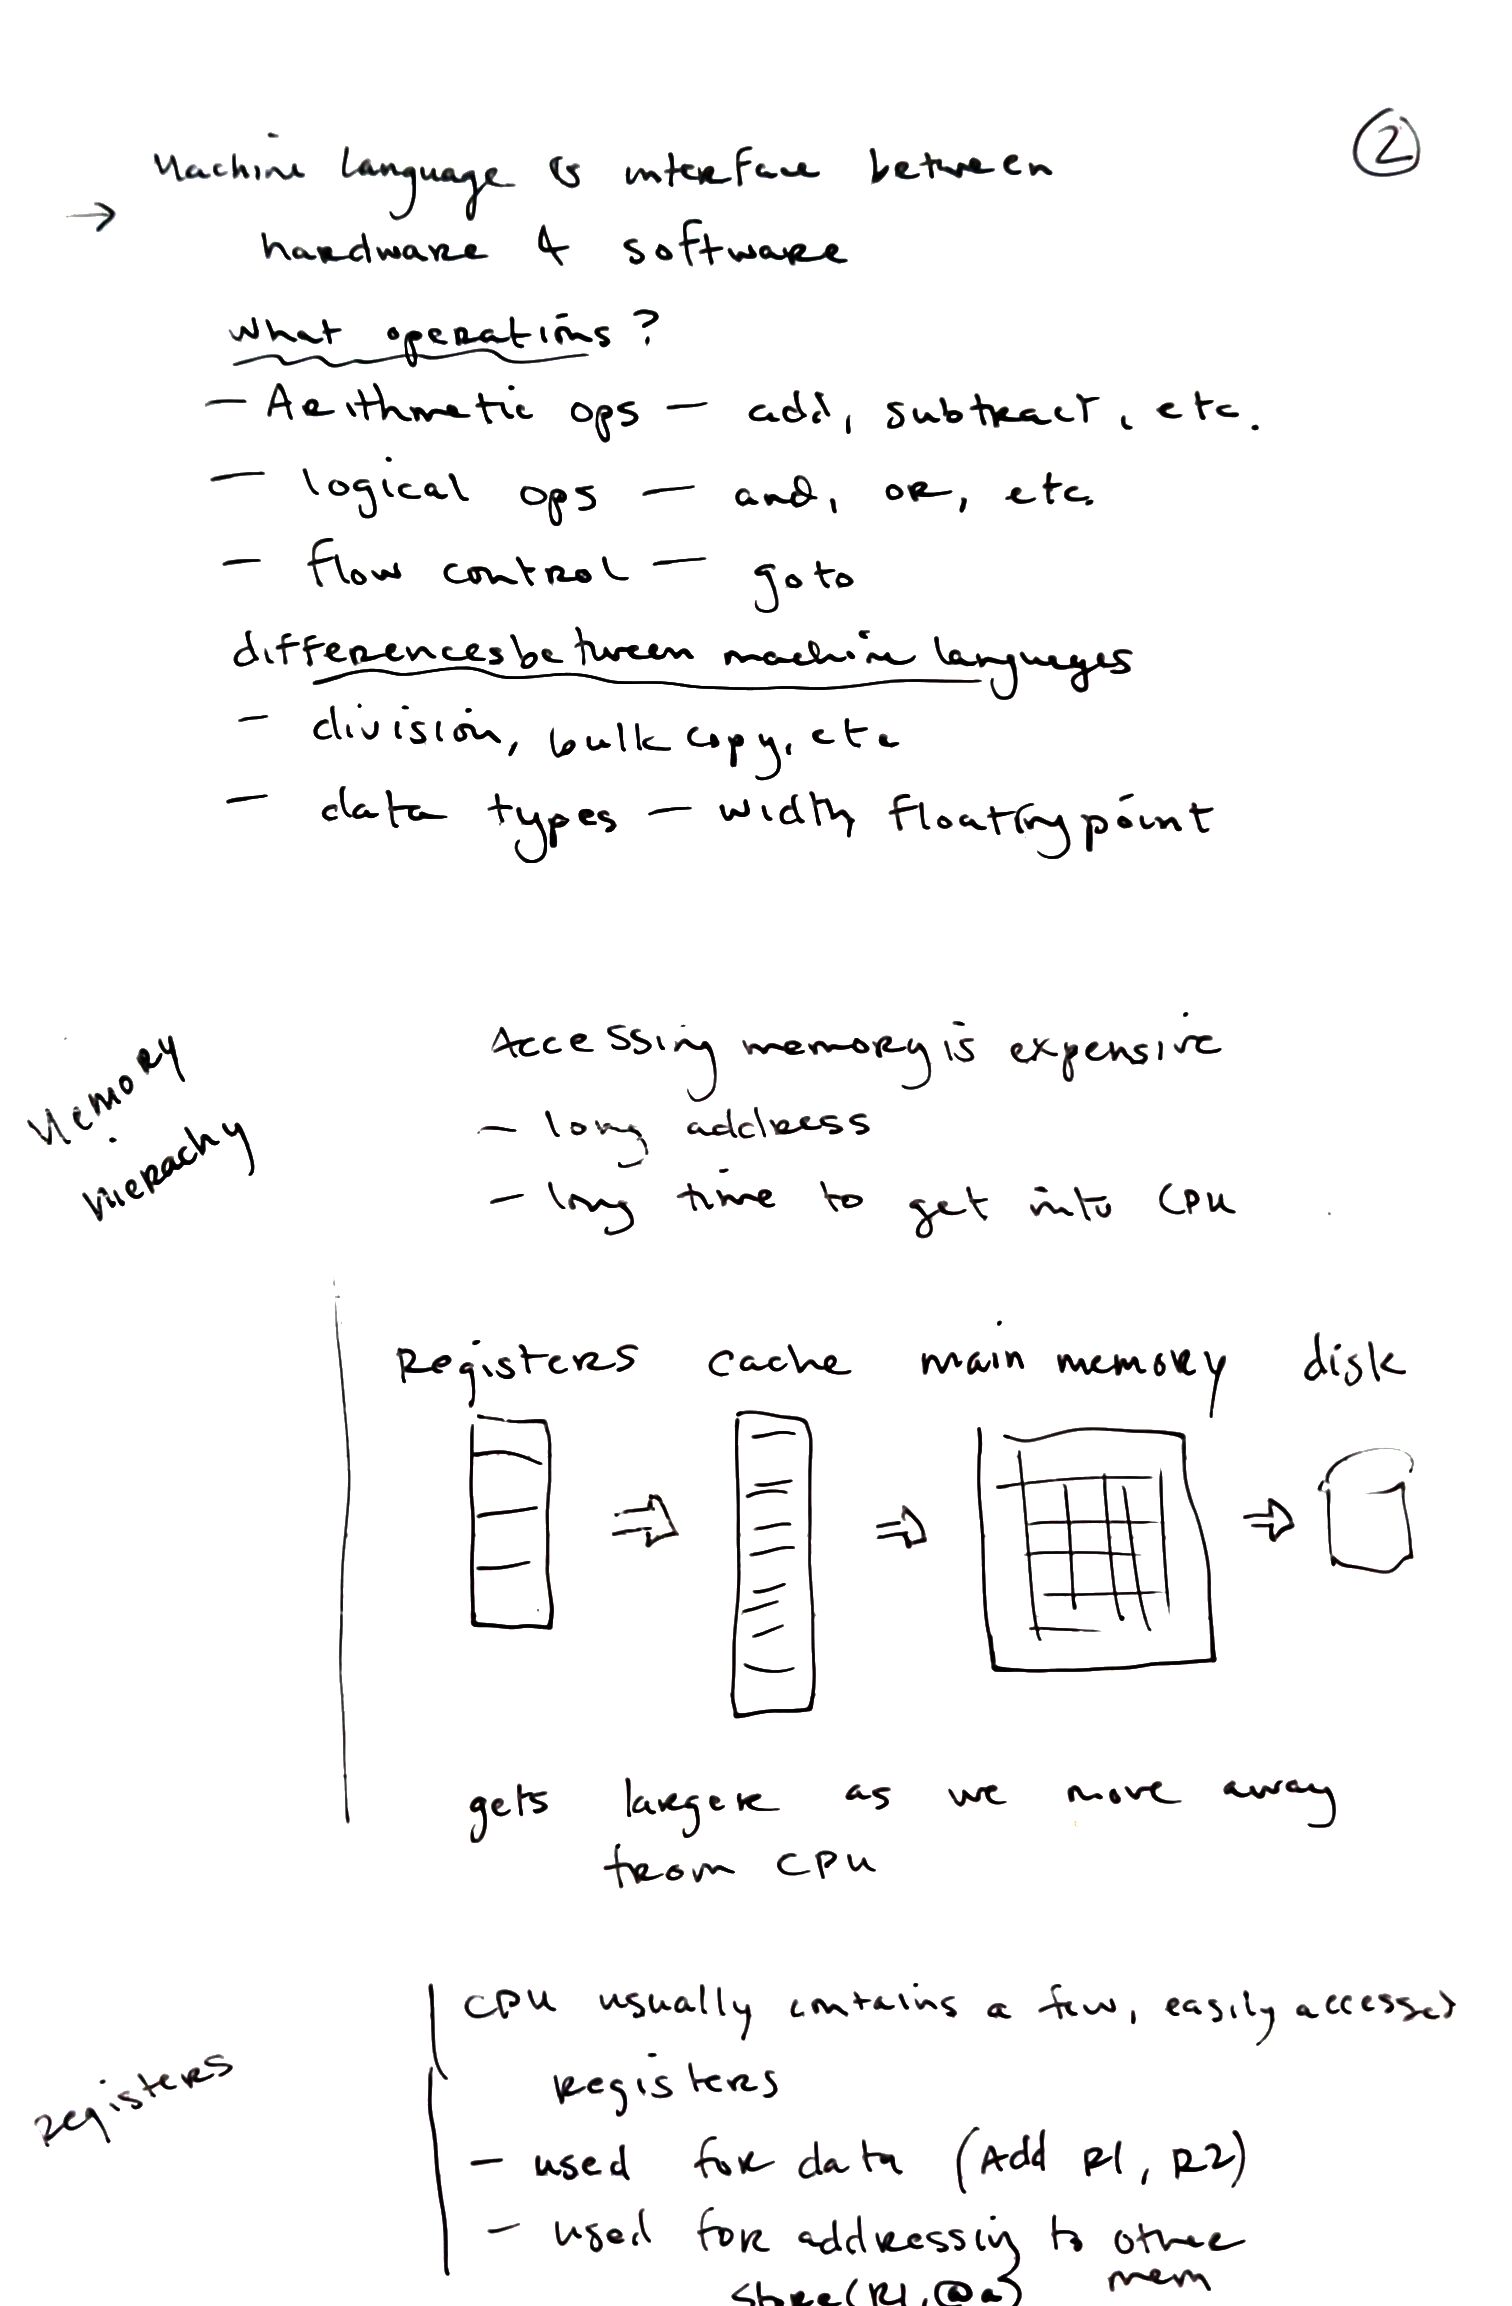 ②
Machine language is interface between
→ hardware & software
What operations?
— Arithmetic ops — add, subtract, etc.
— logical ops — and, or, etc.
— flow control — goto
differences between machine languages
— division, bulk copy, etc
— data types — width, floating point
Memory
Hierachy
Accessing memory is expensive
— long address
— long time to get into CPU
Registers cache main memory disk
gets larger as we move away
from CPU
Registers
CPU usually contains a few, easily accessed
registers
— used for data (Add R1, R2)
— used for addressing to other
mem
Store(R1, @a)